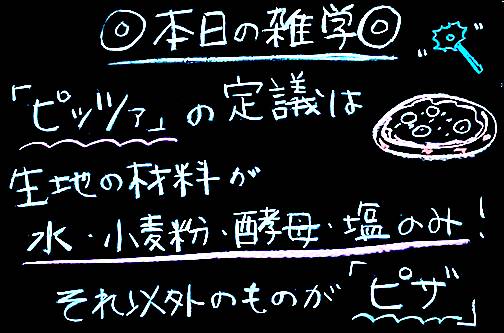 ◎本日の雑学◎
「ピッツァ」の定議は
生地の材料が
水・小麦粉・酵母・塩のみ!
それ以外のものが「ピザ」